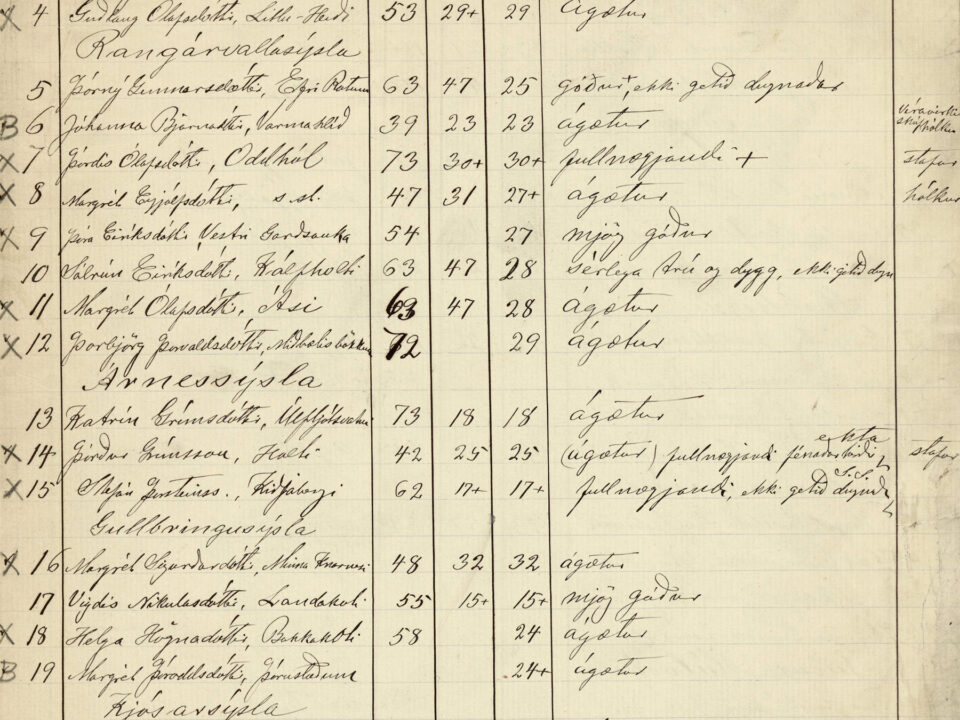 X 4 Guðlaug Ólafsdóttir, Litlu-Heiði 53 29+ 29 ágætur
Rangárvallasýsla
5 Þórný Gunnarsdóttir, Efri Rotum 63 47 25 góður+, ekki getið dugnaðar
B 6 Jóhanna Bjarnadóttir, Varmahlíð 39 23 23 ágætur
X 7 Þórdís Ólafsdóttir, Oddhól 73 30+ 30+ fullnægjandi + stafur
X 8 Margrét Eyjólfsdóttir, s. st. 47 31 27+ ágætur hólkur
X 9 Þóra Eiríksdóttir, Vestri Garðsauka 54 27 mjög góður
10 Sólrún Eiríksdóttir, Kálfholti 63 47 28 sérlega trú og dygg, ekki getið dugn
X 11 Margrét Ólafsdóttir, Ási 63 47 28 ágætur
X 12 Þorbjörg Þorvaldsdóttir, Miðbælisbökkum 72 29 ágætur
Árnessýsla
13 Katrín Grímsdóttir, Úlfljótsvatni 73 18 18 ágætur
X 14 Þórður Grímsson, Holti 42 25 25 (ágætur) fullnægjandi stafur
X 15 Stefán Þorsteinss., Kiðjabergi 62 17+ 17+ fullnægjandi, ekki getið dugnað
Gullbringusýsla
X 16 Margrét Sigurðardóttir, Minna Knarrnesi 48 32 32 ágætur
17 Vigdís Nikulásdóttir, Landakoti 55 15+ 15+ mjög góður
X 18 Helga Högnadóttir, Bakkakoti 58 24 ágætur
B 19 Margrét Þóroddsdóttir, Þórustöðum 24+ ágætur
Kjósarsýsla